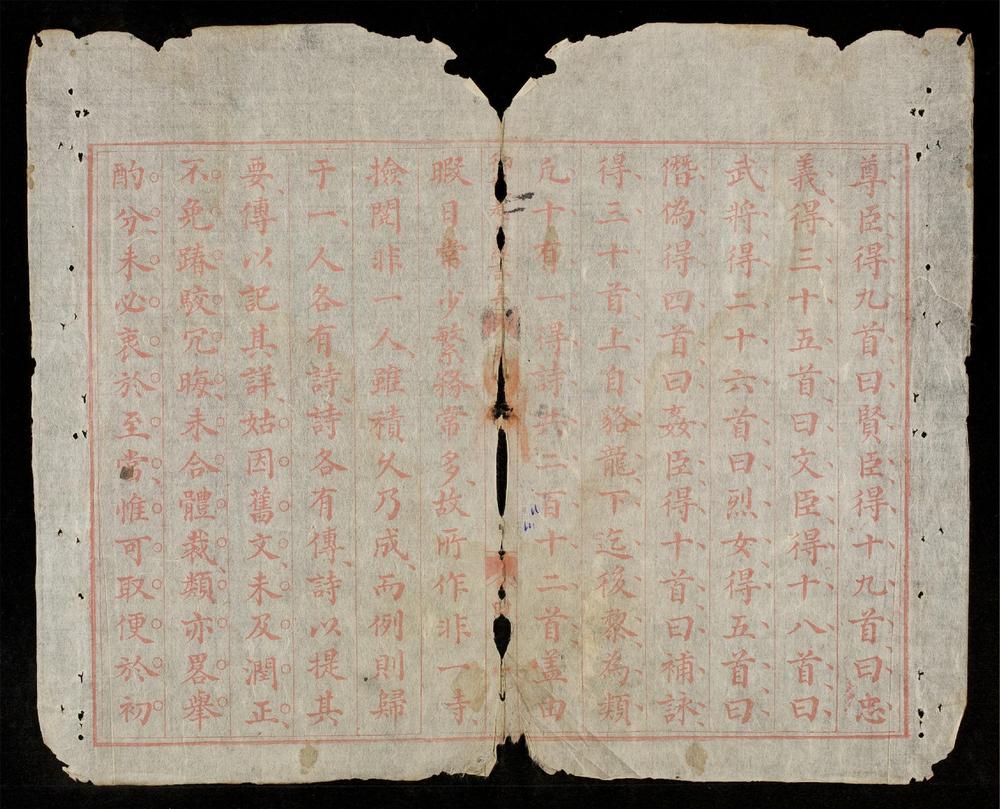 尊臣得九首曰賢臣得十九首曰忠
義得三十五首曰文臣得十八首曰
武將得二十六首曰烈女得五首曰
僭偽得四首曰姦臣得十首曰補詠
得三十首上自貉龍下迄後黎為類
凡十有一得詩共二百十二首盖由
暇日常少繁務常多故所作非一寺
撿閱非一人雖積久乃成而例則歸
于一人各有詩詩各有傳詩以提其
要傳以記其詳姑因舊文未及潤正
不免踳駁冗晦未合體裁類亦畧舉
酌分未必衷於至當惟可取便於初